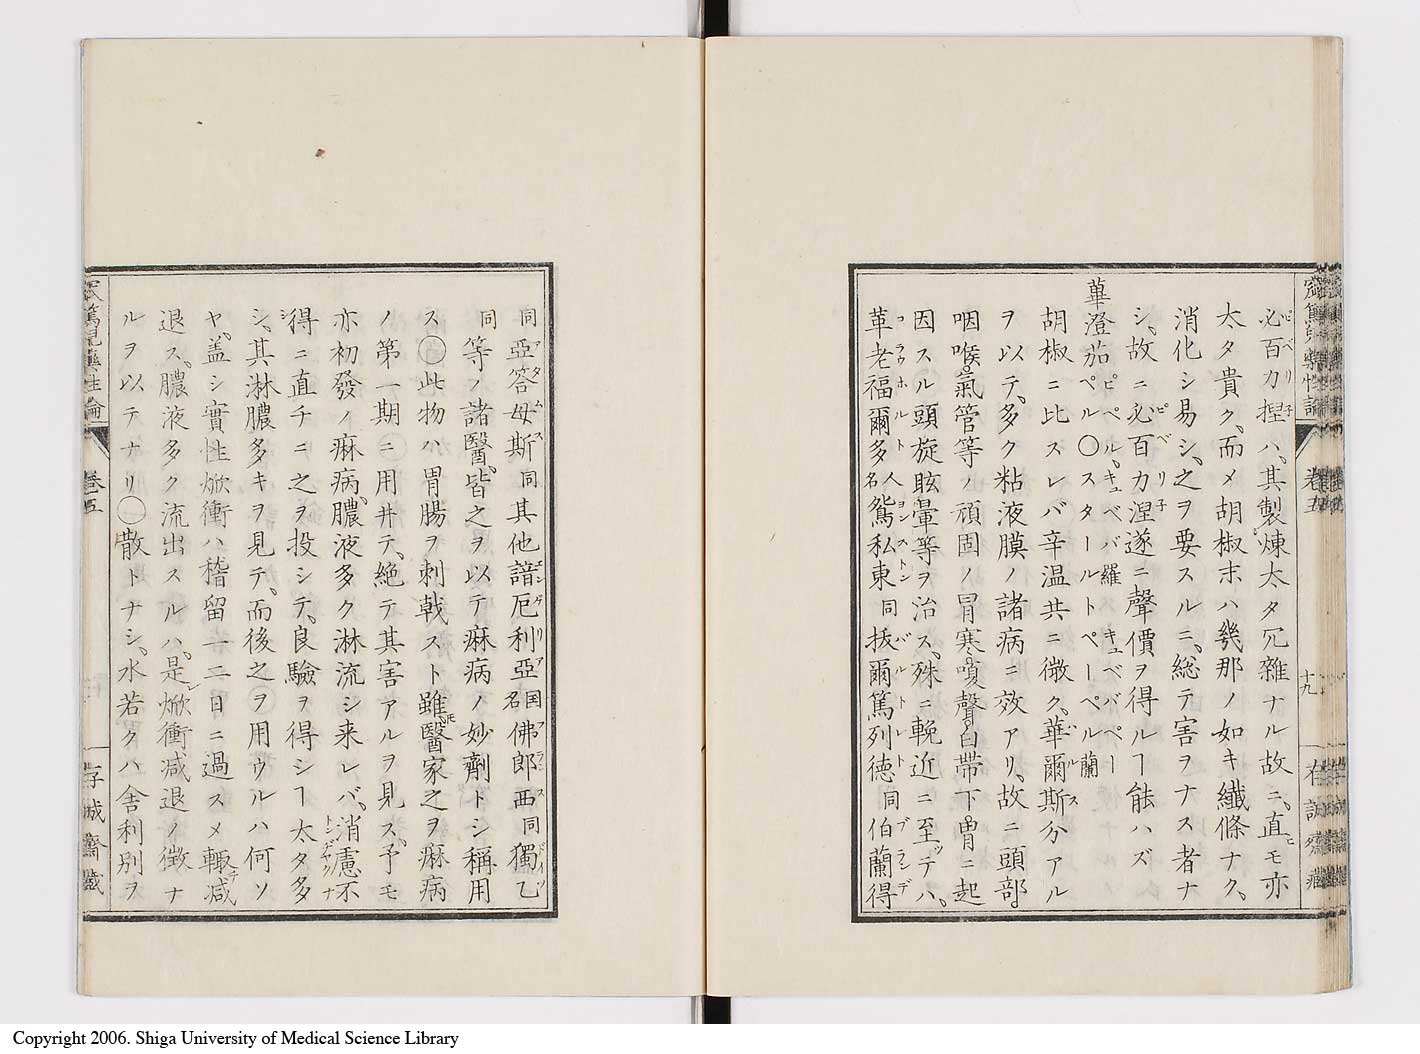 必百力捏ハ、其製煉太タ冗雜ナル故ニ、直モ亦
太タ貴ク、而メ胡椒末ハ幾那ノ如キ纖條ナク、
消化シ易シ、之ヲ要スルニ、総テ害ヲナス者ナ
シ、故ニ必百力涅遂ニ聲價ヲ得ルヿ能ハズ
蓽澄茄ペル〇スタールトペーペル蘭
ピペル、キュベバ羅 キュベバペー
胡椒ニ比スレバ辛温共ニ微ク、華爾斯分アル
ヲ以テ、多ク粘液膜ノ諸病ニ效アリ、故ニ頭部。
咽喉。氣管等ノ頑固ノ冒寒、嗄聲。白帶下。胃ニ起
因スル頭旋眩暈等ヲ治ス、殊ニ輓近ニ至テハ、
革老福爾多人名鴛私東同拔爾篤列徳同伯蘭得
同亞答毋斯同其他諳厄利亞国名佛郎西同獨乙
同等ノ諸醫、皆之ヲ以テ痳病ノ妙劑トシ稱用
ス〇此物ハ胃腸ヲ刺戟スト雖、醫家之ヲ痳病
ノ第一期ニ用井テ、絶テ其害アルヲ見ス、予モ
亦初發ノ痳病、膿液多ク淋流シ来レバ、消慝不
得ニ直チニ之ヲ投シテ、良驗ヲ得シヿ太タ多
シ、其淋膿多キヲ見テ、而後之ヲ用ウルハ何ソ
ヤ、盖シ實性焮衝ハ稽留一二日ニ過スメ輙減
退ス、膿液多ク流出スルハ、是焮衝减退ノ徴ナ
ルヲ以テナリ〇散トナシ、水若クハ舎利別ヲ
卷五
十九
卷五